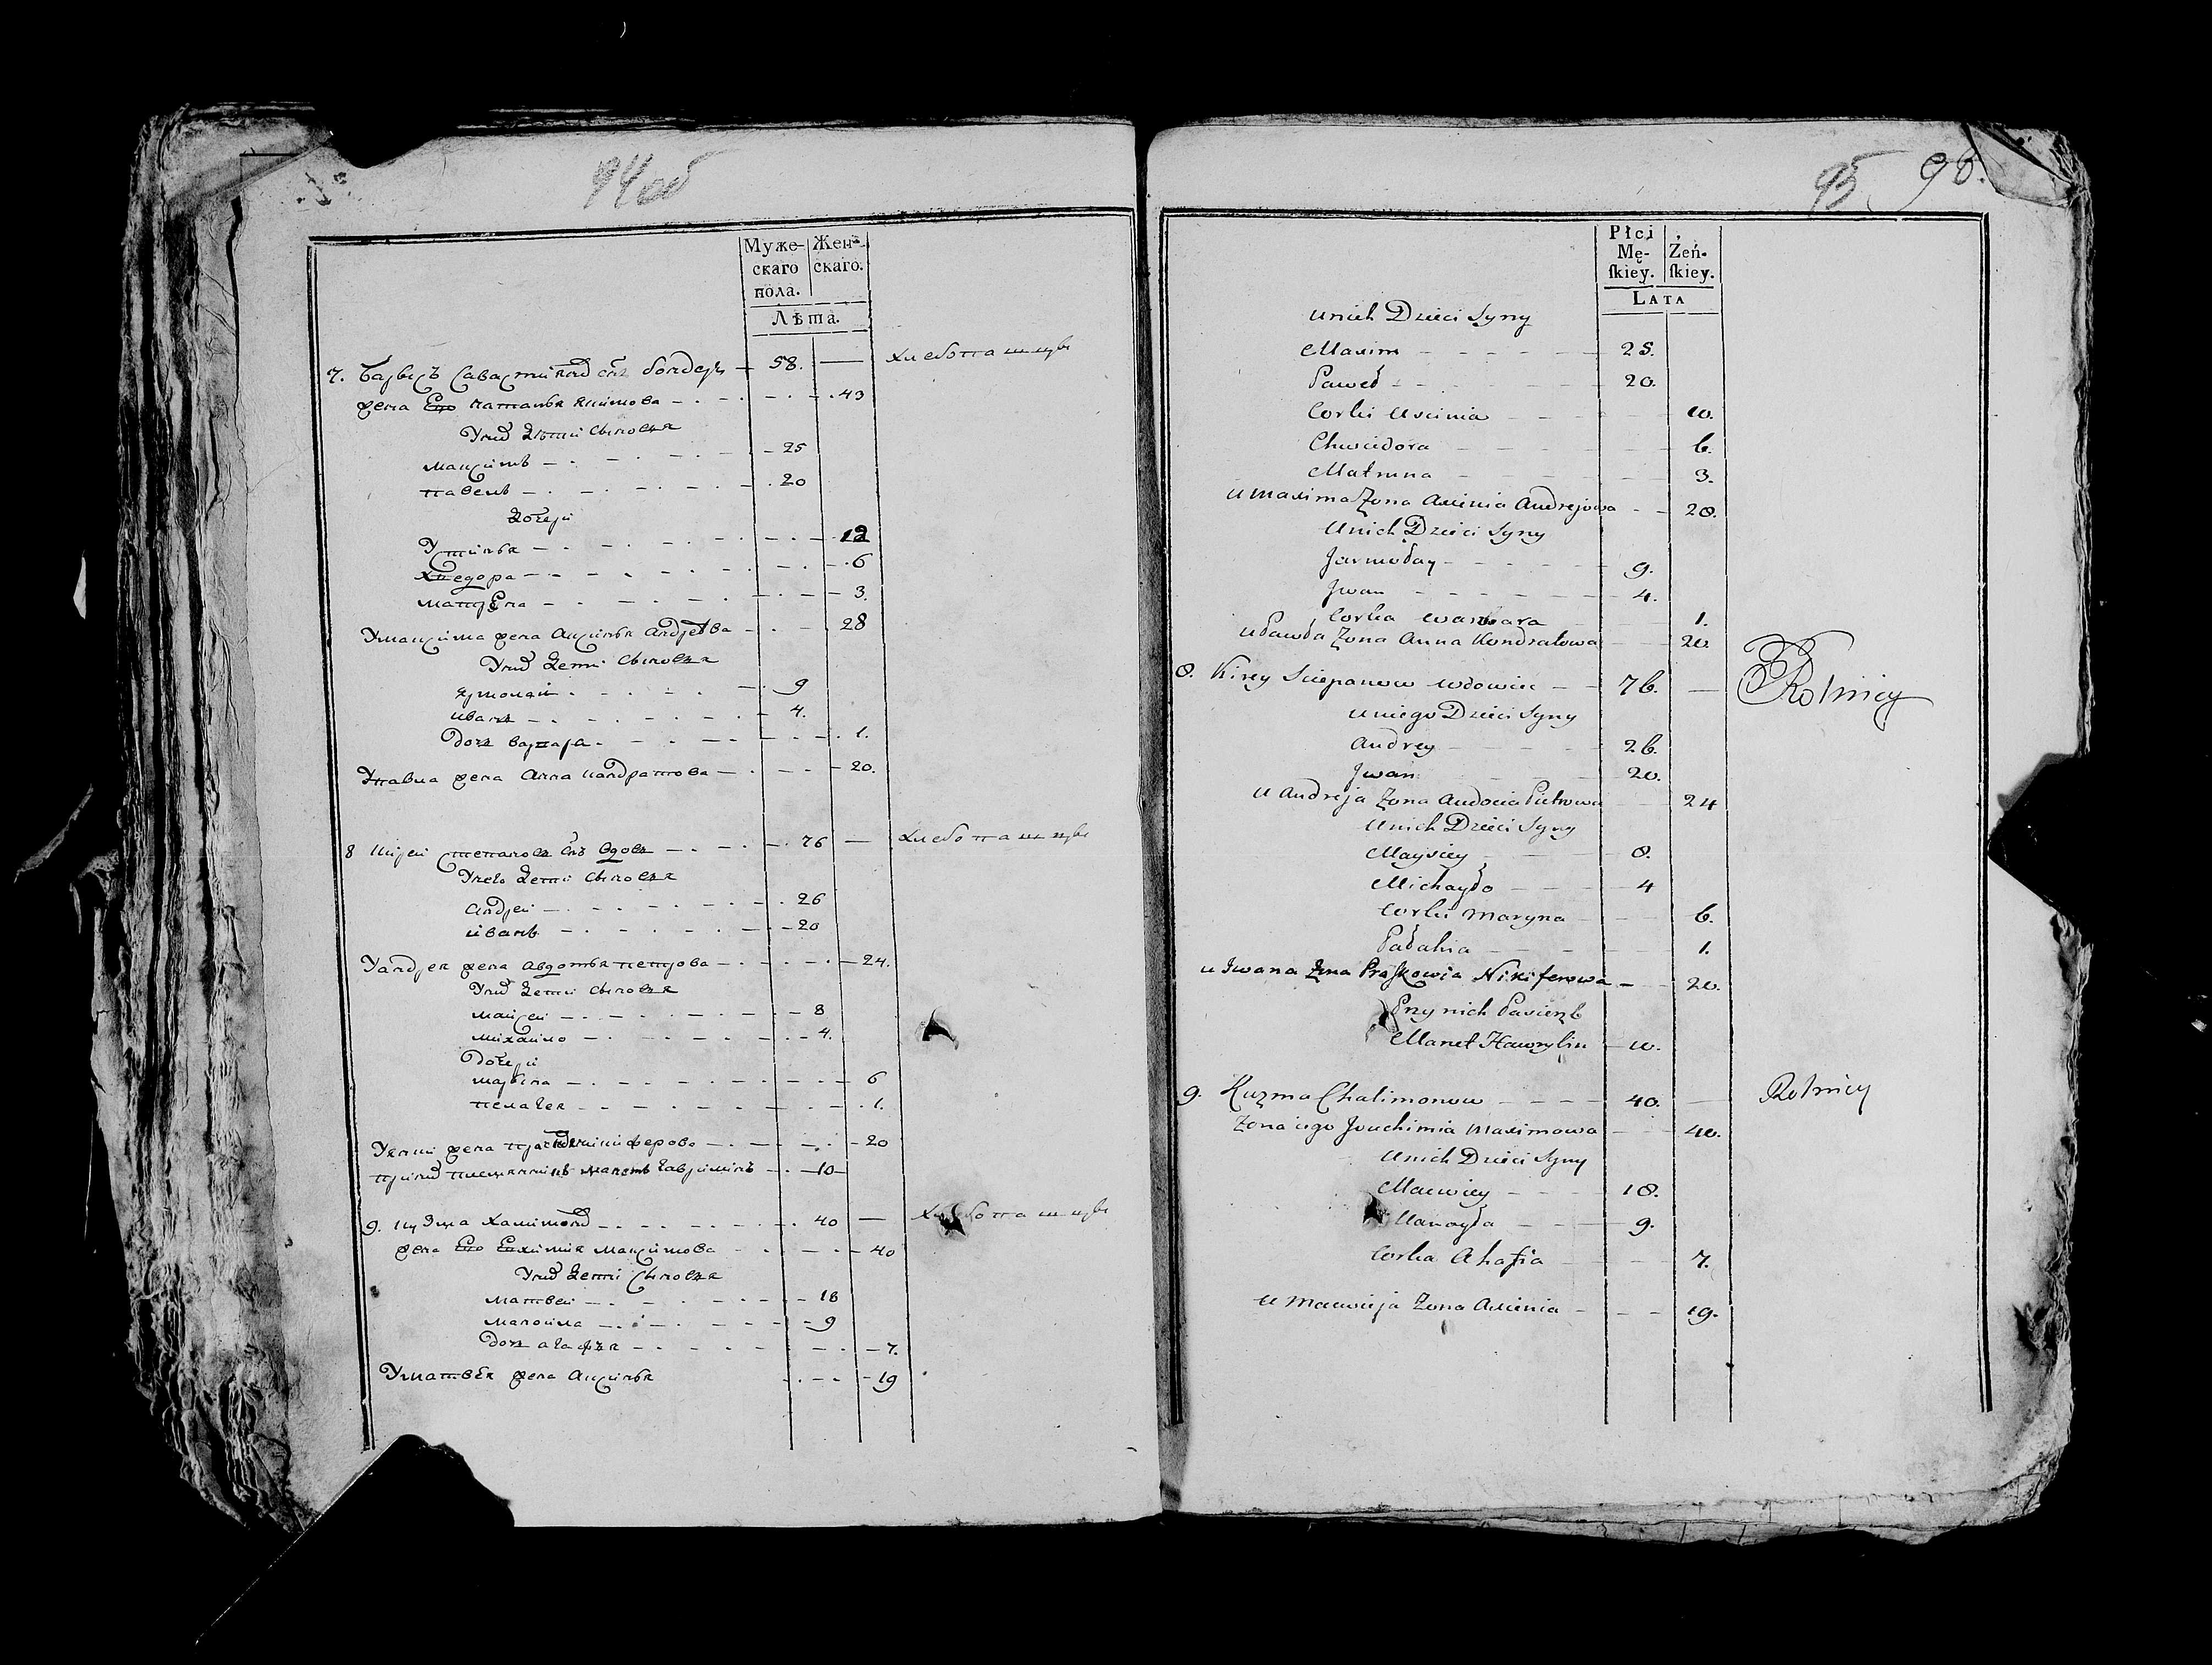 94об
Муже- Жен-
скаго скаго.
пола.
Лѣта.
7. Барысъ Савастиянов снъ бондарь 58. — хлебопашцы
жена Его наталья якимова 43
Уних дѣти сыновья
максимъ 25
павелъ 20
дочери
Устинья 12
хведора 6
матрена 3.
Умаксима жена Аксинья андреева 28
Уних дети сыновья
ярмолай 9
иванъ 4.
дочь варвара 1.
Упавла жена Анна кандратова 20.
8 кирей степановъ снъ вдовъ 76 — хлебопашцы
Унего дети сыновья
андрей 26
иванъ 20
Уандрея жена авдотья петрова 24.
Уних дети сыновья
майсей 8
михайло 4.
дочери
марына 6
пелагея 1.
жена никиферова 20
приних племянникъ манетъ гаврилинъ 10
9. кузма халимонов 40 — хлебопашцы
жена Его Ехимия максимова 40
Уних дети сыновья
матвей 18
манойла 9
дочь агафья 7.
Уматвея жена аксинья 19
95 96.
Płci
Mę- Żeń-
skiey. skiey.
LATA
u nich Dzieci Syny
Maxim 25.
Paweł 20.
Corki Uscinia 10.
Chwiedora 6.
Matruna 3.
u Maxima Żona Axinia Andrejowa 28.
u nich Dzieci Syny
Jarmołay 9.
Jwan 4.
Corka Warwara 1.
u Pawła Żona Anna Kondratowa 20.
8. Kirey Sciepanow wdowiec 76. — Rolnicy
u niego Dzieci Syny
Andrey 26.
Jwan 20.
u Andreja Żona Audocia Pietrowa 24
u nich Dzieci Syny
Maysiey 8.
Michayło 4
Corki Maryna 6.
Pałahia 1.
u Iwana Żona Praskowia Nikiferowa 20.
Przy nich Pasierzb
Manet Hawrylin 10.
9. Kuzma Chalimonow 40. — Rolnicy
Żona iego Jouchimia Maximowa 40.
u nich Dzieci Syny
Maciwiey 18.
Manoyła 9.
Corka Ahafia 7.
u Maciwieja Żona Axienia 19.